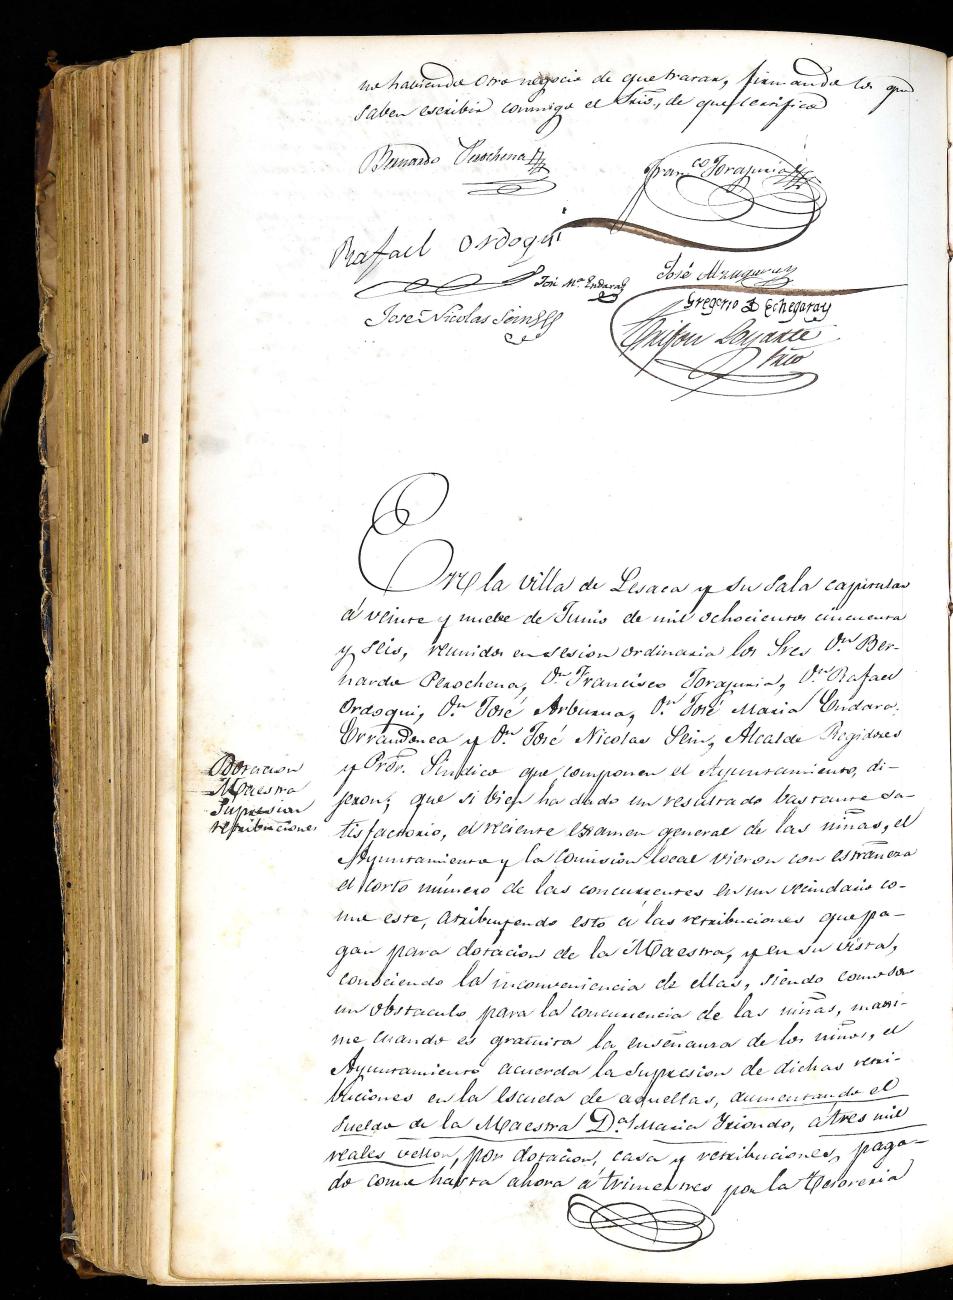 no habiendo otro negocio de que tratar, firmando los que
saben escribir conmigo el Srio, de que certifico
Bernardo Perochena
Franco Torajuria
Rafael Ordoqui
José Ma Endara
José
José Nicolas Soin
Gregorio Echegaray
Srio
En la villa de Lesaca y su sala capitular
á veinte y nuebe de Junio de mil ochocientos cincuenta
y seis, reunidos en sesion ordinaria los Sres Dn Ber-
nardo Perochena, Dn Francisco Torajuria, Dn Rafael
Ordoqui, Dn José Arburua, Dn José Maria Endara,
Errandonea y Dn José Nicolas Soin, Alcalde Regidores
y Pror. Sindico que componen el Ayuntamiento, di-
jeron; que si bien ha dado un resultado bastante sa-
tisfactorio, el reciente examen general de las niñas, el
Ayuntamiento y la Comision local vieron con estrañeza
el corto número de las concurrentes en un vecindario co-
mo este, atribuyendo esto á las retribuciones que pa-
gan para dotacion de la Maestra, y en su vista,
conociendo la inconveniencia de ellas, siendo como son
un obstaculo para la concurrencia de las niñas, maxi-
me cuando es gratuita la enseñanza de los niños, el
Ayuntamiento acuerda la supresion de dichas retri-
buciones en la escuela de aquellas, aumentando el
sueldo de la Maestra Da Maria Yriondo, a tres mil
reales vellon, por dotacion, casa y retribuciones, paga-
do como hasta ahora á trimestres por la Tesoreria
Dotacion
Maestra
Supresion
retribuciones